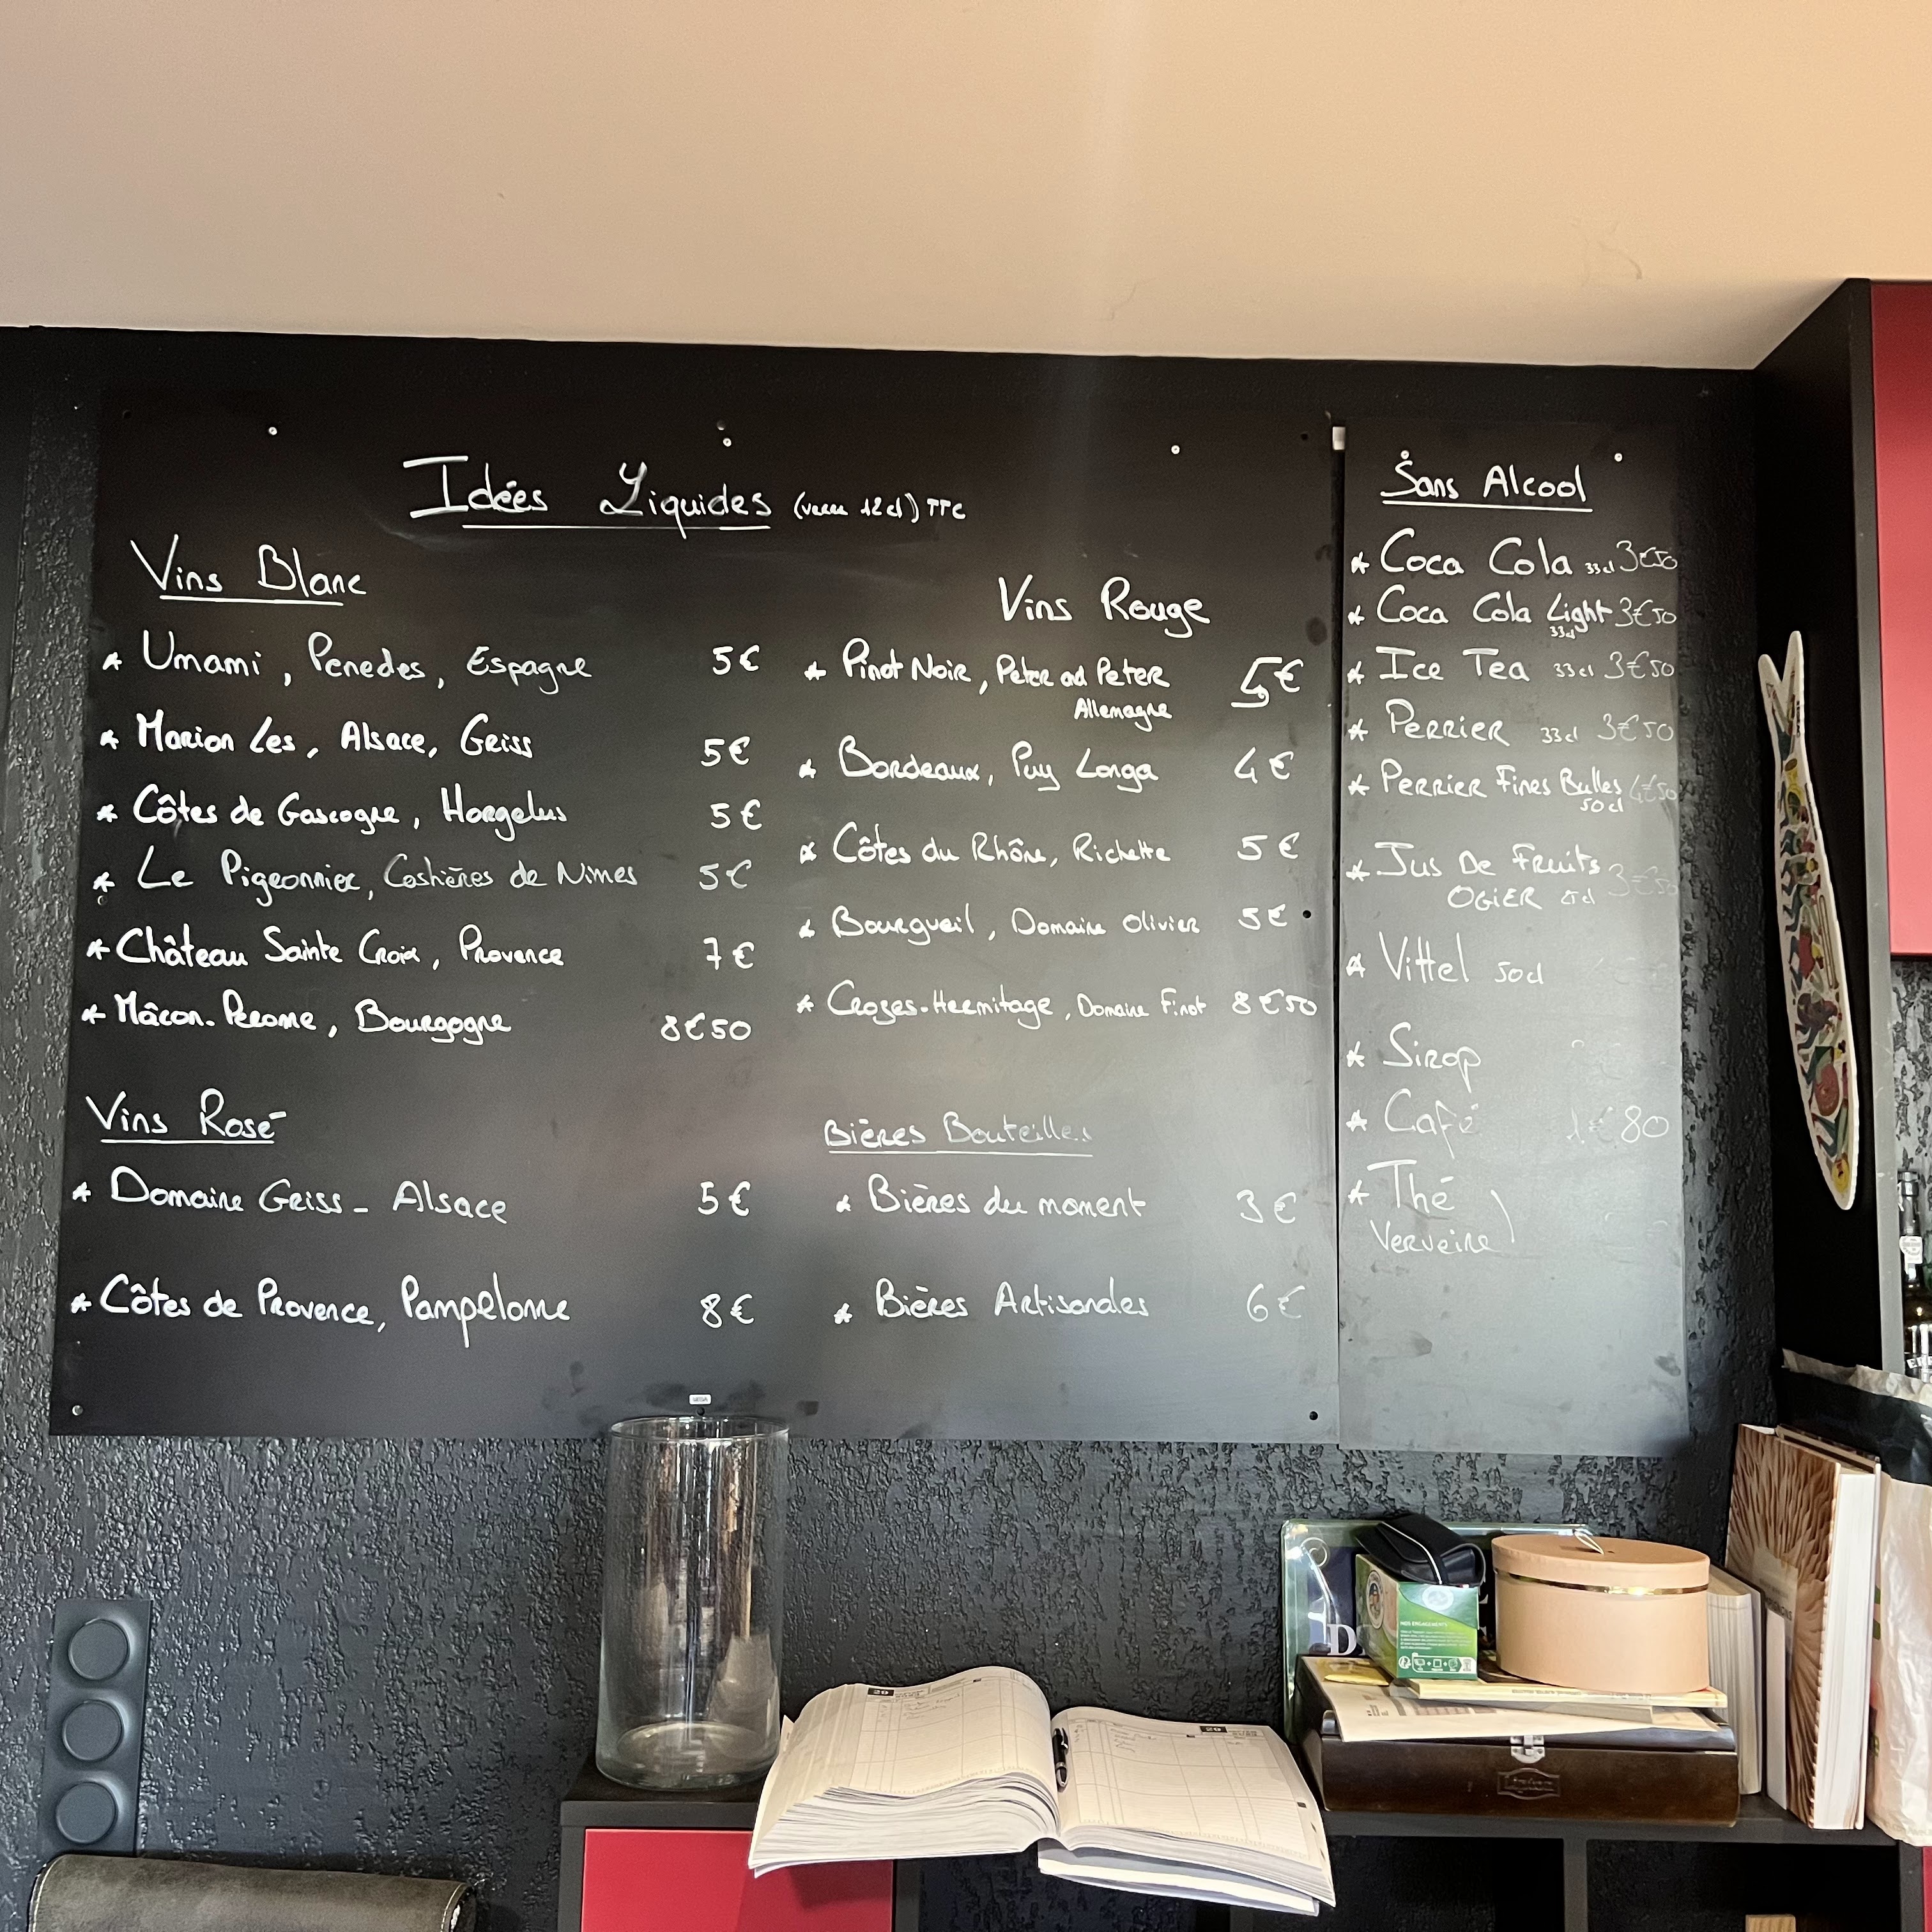 Idées Liquides (verre 12cl) TTC
Vins Blanc
* Umami, Penedes, Espagne 5€
* Marion Les, Alsace, Geiss 5€
* Côtes de Gascogne, Horgelus 5€
* Le Pigeonnier, Costières de Nimes 5€
* Château Sainte Croix, Provence 7€
* Mâcon-Perome, Bourgogne 8€50
Vins Rosé
* Domaine Geiss - Alsace 5€
* Côtes de Provence, Pampelonne 8€
Vins Rouge
* Pinot Noir, Peter and Peter 5€
Allemagne
* Bordeaux, Puy Longa 4€
* Côtes du Rhône, Richette 5€
* Bourgueil, Domaine Olivier 5€
* Crozes-Hermitage, Domaine Finot 8€50
Bières Bouteilles
* Bières du moment 3€
* Bières Artisanales 6€
Sans Alcool
* Coca Cola 33cl 3€50
* Coca Cola Light 3€50
33cl
* Ice Tea 33cl 3€50
* Perrier 33cl 3€50
* Perrier Fines Bulles 4€50
50cl
* Jus De Fruits 3€50
OGIER
* Vittel 50cl
* Sirop
* Café 1€80
* Thé
Verveine